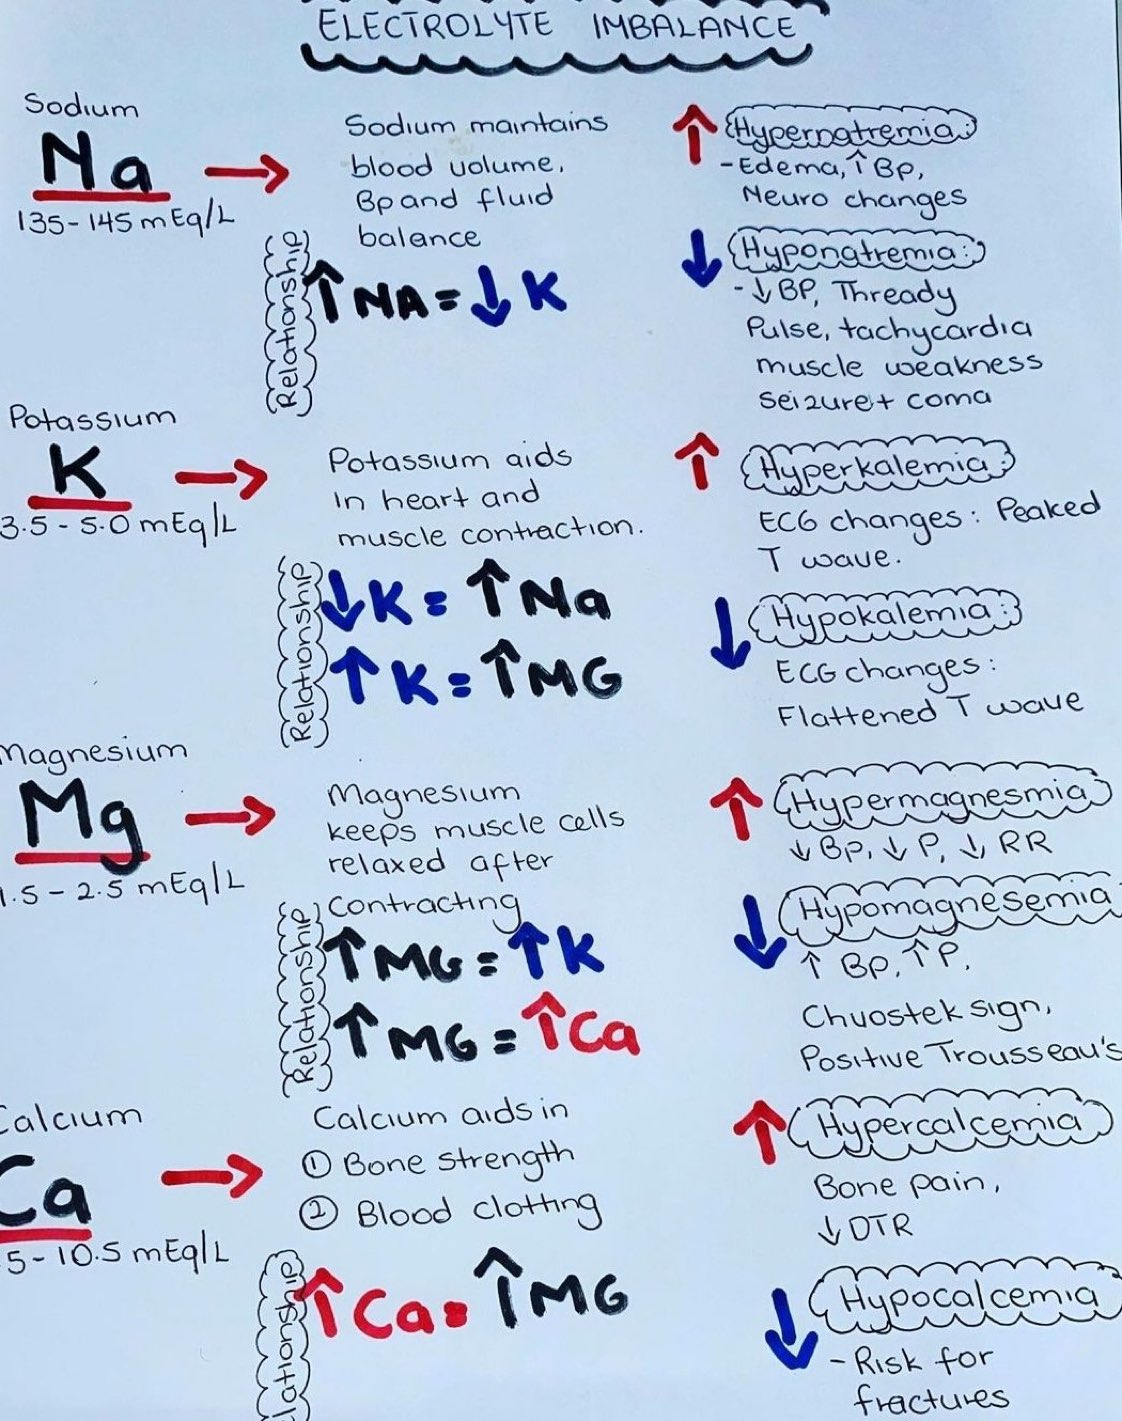 ELECTROLYTE IMBALANCE
Sodium
Na
135-145 mEq/L
Sodium maintains
blood volume,
Bp and fluid
balance
Relationship
↑ NA = ↓ K
↑ Hypernatremia:
-Edema, ↑ Bp,
Neuro changes
↓ Hyponatremia:
- ↓ BP, Thready
Pulse, tachycardia
muscle weakness
Seizure + coma
Potassium
K
3.5 - 5.0 mEq/L
Potassium aids
in heart and
muscle contraction.
Relationship
↓ K = ↑ Na
↑ K = ↑ MG
↑ Hyperkalemia:
ECG changes: Peaked
T wave.
↓ Hypokalemia:
ECG changes:
Flattened T wave
Magnesium
Mg
1.5 - 2.5 mEq/L
Magnesium
keeps muscle cells
relaxed after
contracting
Relationship
↑ MG = ↑ K
↑ MG = ↑ Ca
↑ Hypermagnesmia
↓ Bp, ↓ P, ↓ RR
↓ Hypomagnesemia
↑ Bp, ↑ P,
Chvostek sign,
Positive Trousseau's
Calcium
Ca
5 - 10.5 mEq/L
Calcium aids in
① Bone strength
② Blood clotting
lationship
↑ Ca = ↑ MG
↑ Hypercalcemia
Bone pain,
↓ DTR
↓ Hypocalcemia
- Risk for
fractures